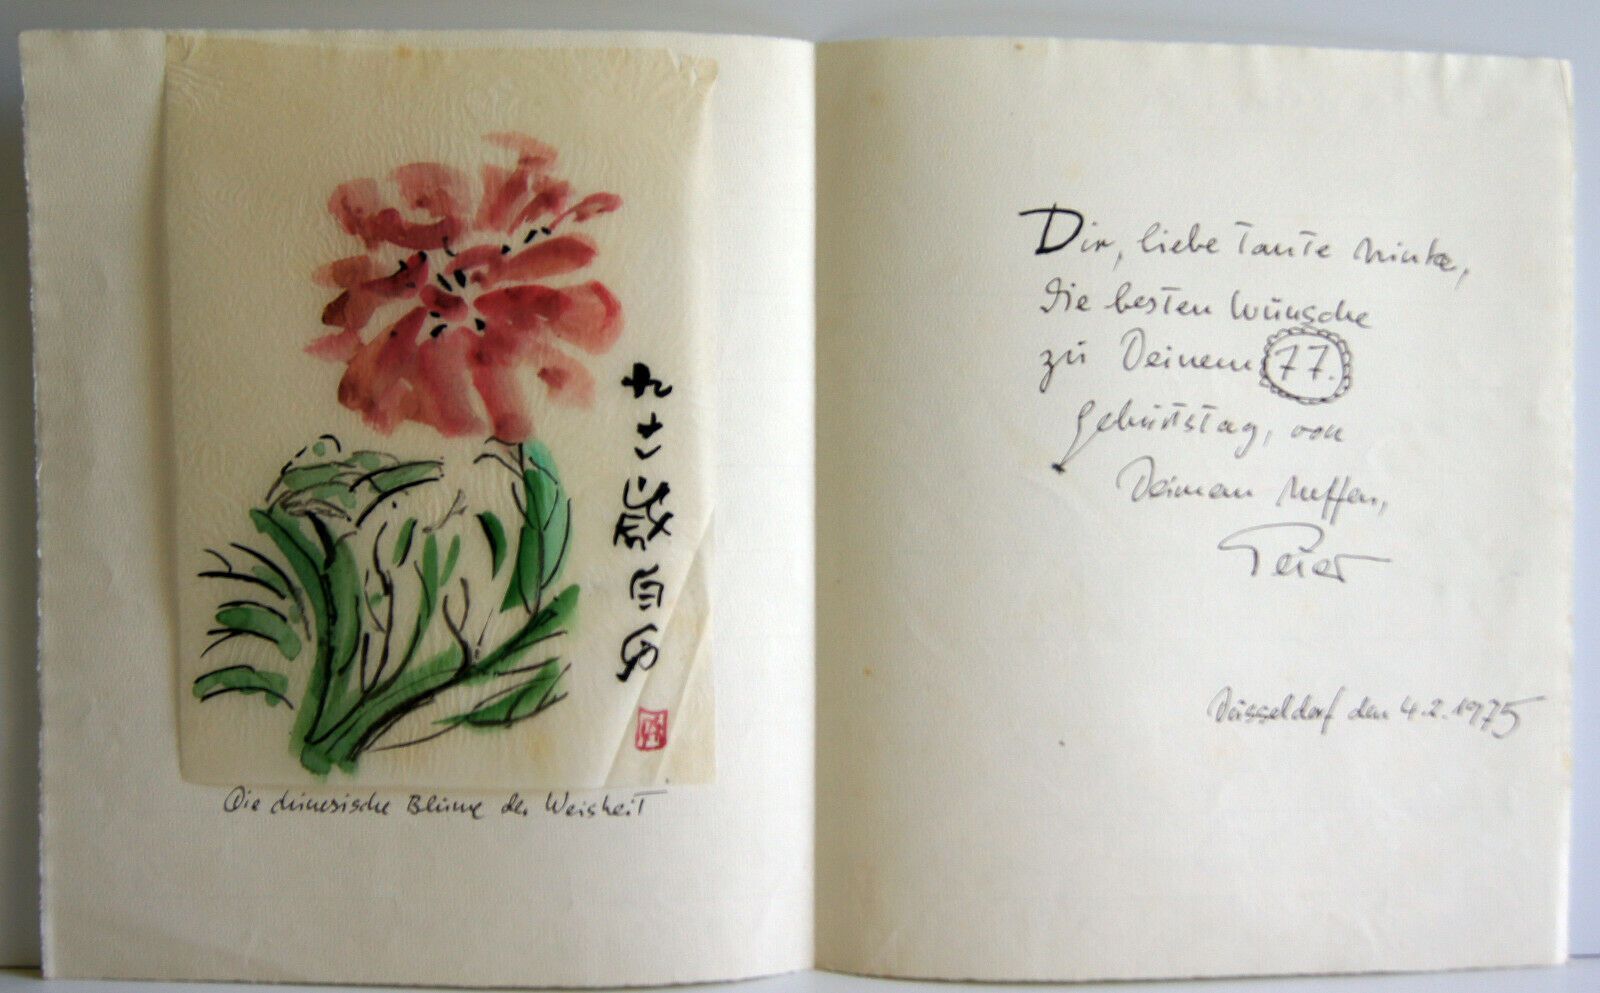 九十二歲白石
Die chinesische Blume der Weisheit
Dir, liebe Tante Minka,
die besten Wünsche
zu Deinem 77.
Geburtstag, von
Deinem Neffen,
Peter
Düsseldorf den 4.2.1975